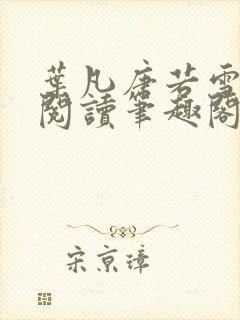 葉凡唐若雪
閱讀筆趣閣
宋京璋